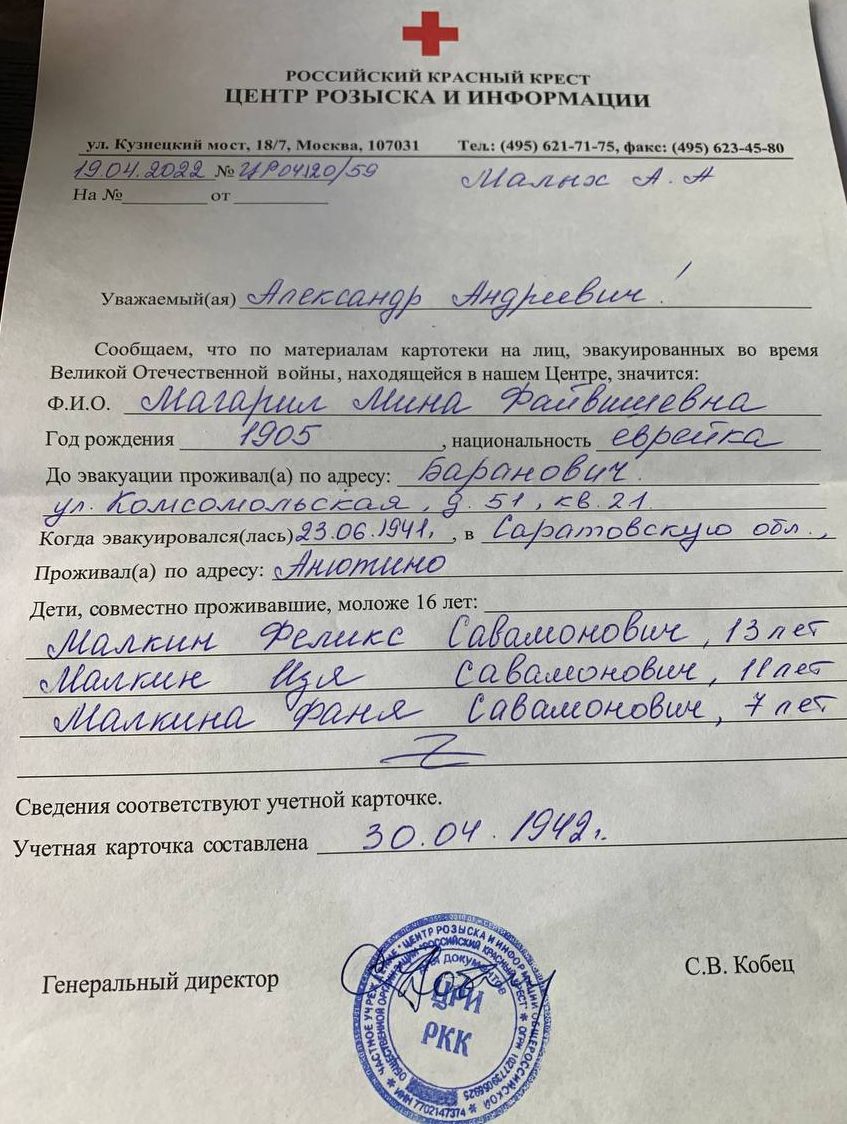 РОССИЙСКИЙ КРАСНЫЙ КРЕСТ
ЦЕНТР РОЗЫСКА И ИНФОРМАЦИИ
ул. Кузнецкий мост, 18/7, Москва, 107031 Тел.: (495) 621-71-75, факс: (495) 623-45-80
19.04.2022 № ЦР04120/59 Малых А. А
На №_________ от __________
Уважаемый(ая) Александр Андреевич!
Сообщаем, что по материалам картотеки на лиц, эвакуированных во время
Великой Отечественной войны, находящейся в нашем Центре, значится:
Ф.И.О. Магарил Мина Файвишевна
Год рождения 1905, национальность еврейка
До эвакуации проживал(а) по адресу: Баранович.
ул. Комсомольская, д. 51, кв. 21.
Когда эвакуировался(лась) 23.06.1941, в Саратовскую обл.,
Проживал(а) по адресу: Анютино
Дети, совместно проживавшие, моложе 16 лет:
Малкин Феликс Савамонович, 13 лет
Малкин Изя Савамонович, 11 лет
Малкина Фаня Савамонович, 7 лет
Сведения соответствуют учетной карточке.
Учетная карточка составлена 30.04.1942г.
Генеральный директор С.В. Кобец
ЧАСТНОЕ УЧРЕЖДЕНИЕ "ЦЕНТР РОЗЫСКА И ИНФОРМАЦИИ" ОБЩЕРОССИЙСКОЙ
ОБЩЕСТВЕННОЙ ОРГАНИЗАЦИИ "РОССИЙСКИЙ КРАСНЫЙ КРЕСТ"
ДОКУМЕНТОВ
ЦРИ
РКК
ИНН 7702147374